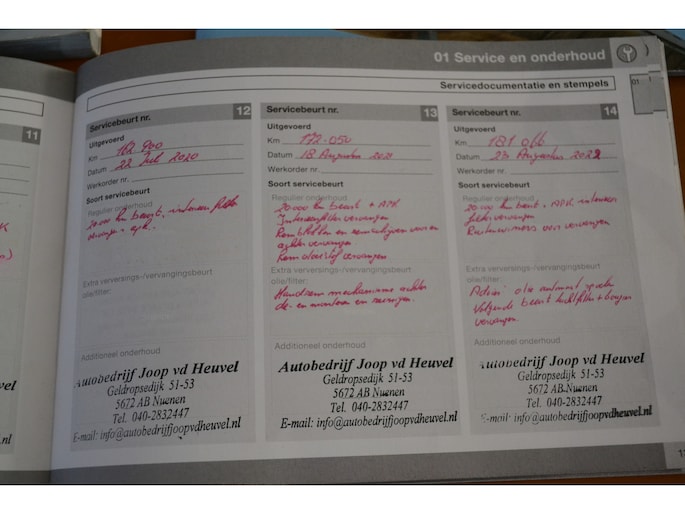 01 Service en onderhoud
01
Servicedocumentatie en stempels
11
Servicebeurt nr. 12
Uitgevoerd
Km 162 900
Datum 22 Juli 2020
Werkorder nr.
Soort servicebeurt
Regulier onderhoud
20 000 km beurt, interieurfilter
vervangen + apk.
Extra verversings-/vervangingsbeurt
olie/filter:
Additioneel onderhoud
Autobedrijf Joop vd Heuvel
Geldropsedijk 51-53
5672 AB Nuenen
Tel. 040-2832447
E-mail: info@autobedrijfjoopvdheuvel.nl
Servicebeurt nr. 13
Uitgevoerd
Km 172-050
Datum 18 Augustus 2021
Werkorder nr.
Soort servicebeurt
Regulier onderhoud
20 000 km beurt + APK
Interieurfilter vervangen
Remblokken en remschijven voor en
achter vervangen
Remvloeistof vervangen
Extra verversings-/vervangingsbeurt
olie/filter:
Handrem mechanisme achter
de- en monteren en reinigen.
Additioneel onderhoud
Autobedrijf Joop vd Heuvel
Geldropsedijk 51-53
5672 AB Nuenen
Tel. 040-2832447
E-mail: info@autobedrijfjoopvdheuvel.nl
Servicebeurt nr. 14
Uitgevoerd
Km 181 066
Datum 23 Augustus 2022
Werkorder nr.
Soort servicebeurt
Regulier onderhoud
20 000 km beurt + APK interieur
filter vervangen
Ruitenwissers voor vervangen
Extra verversings-/vervangingsbeurt
olie/filter:
Advies: olie automaat spoelen
Volgende beurt luchtfilter + bougies
vervangen
Additioneel onderhoud
Autobedrijf Joop vd Heuvel
Geldropsedijk 51-53
5672 AB Nuenen
Tel. 040-2832447
E-mail: info@autobedrijfjoopvdheuvel.nl